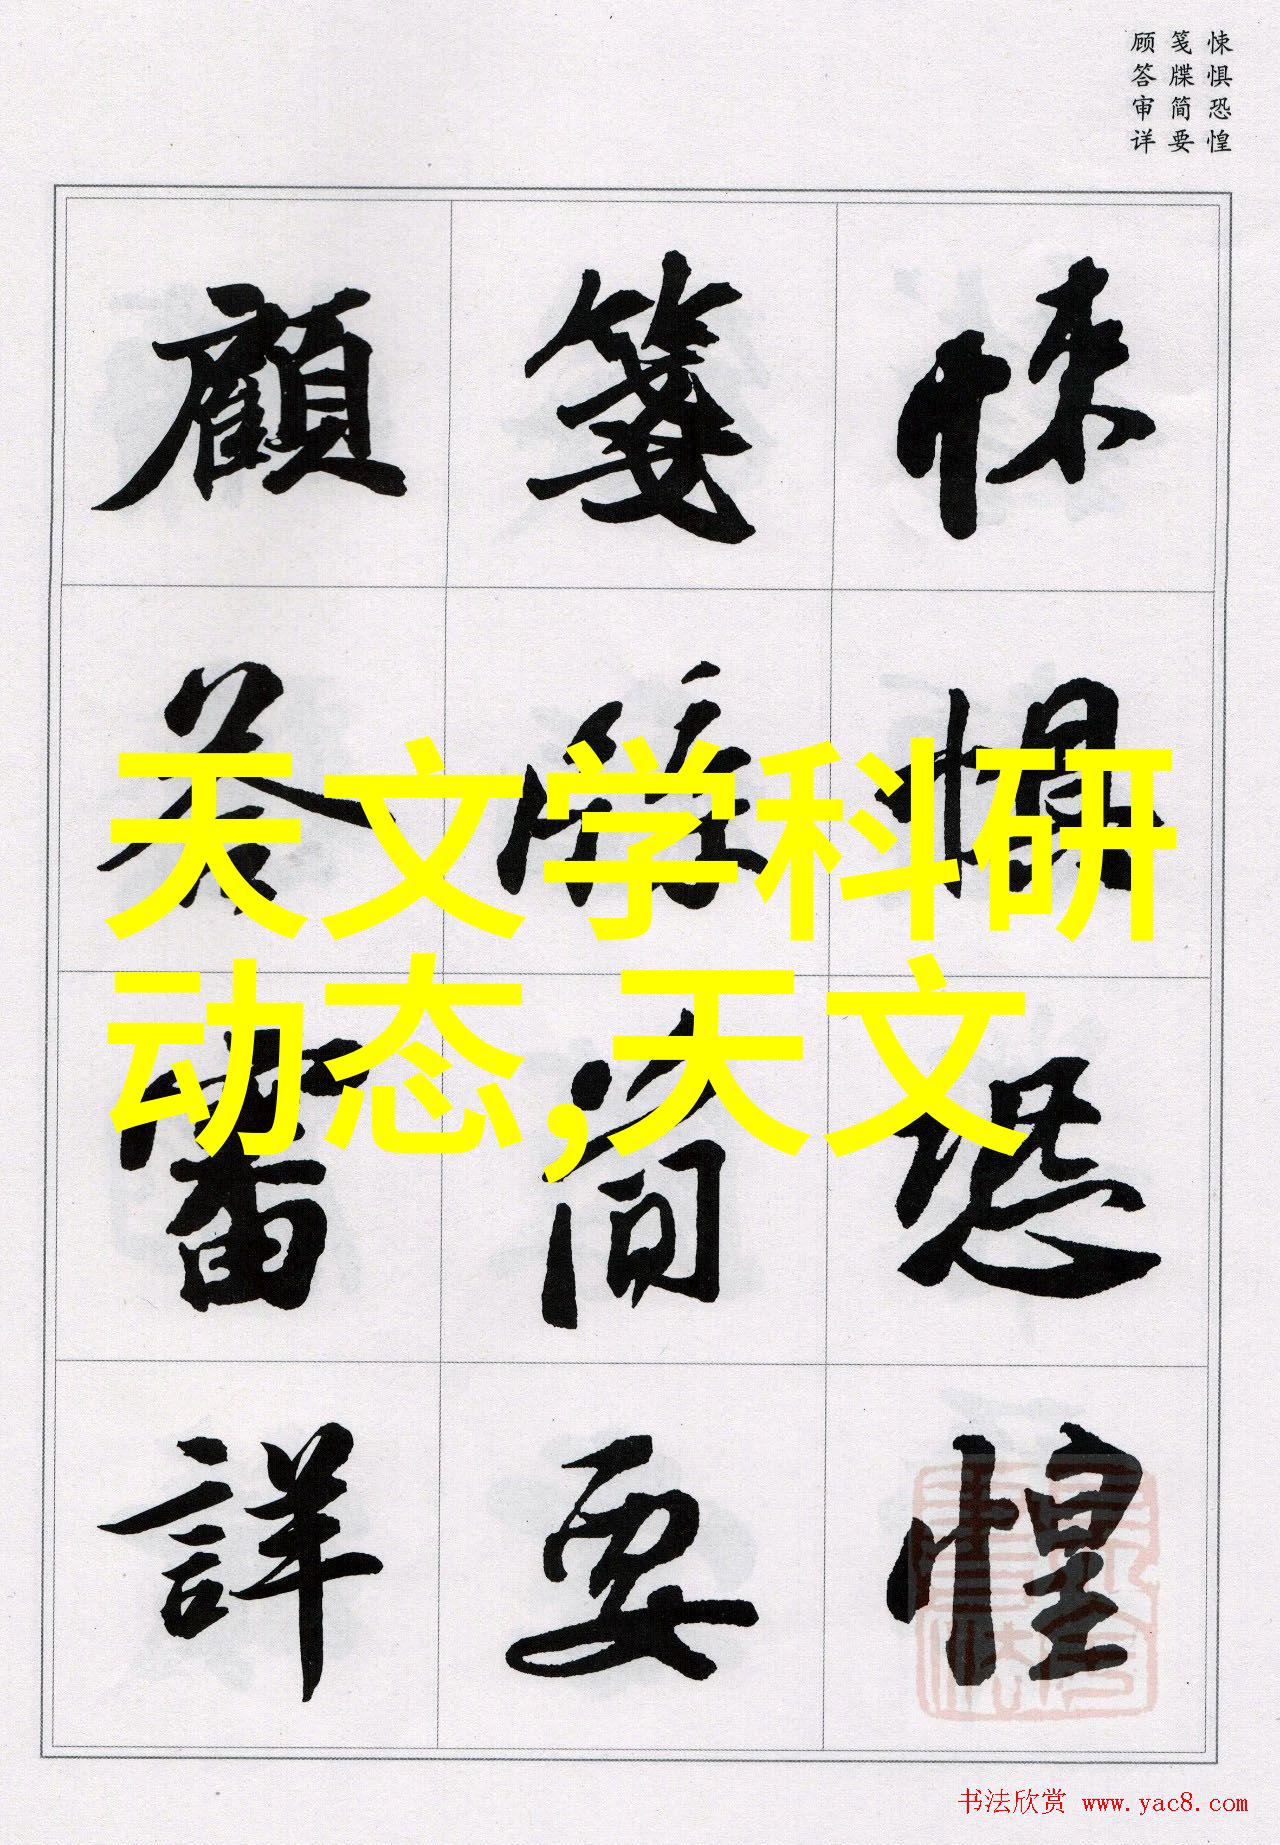 悚惧恐惶
笺牒简要
顾答审详
悚惧恐惶
牋牒简要
顧答審詳
天文学科研
动态,天文
书法欣赏 www.yac8.com